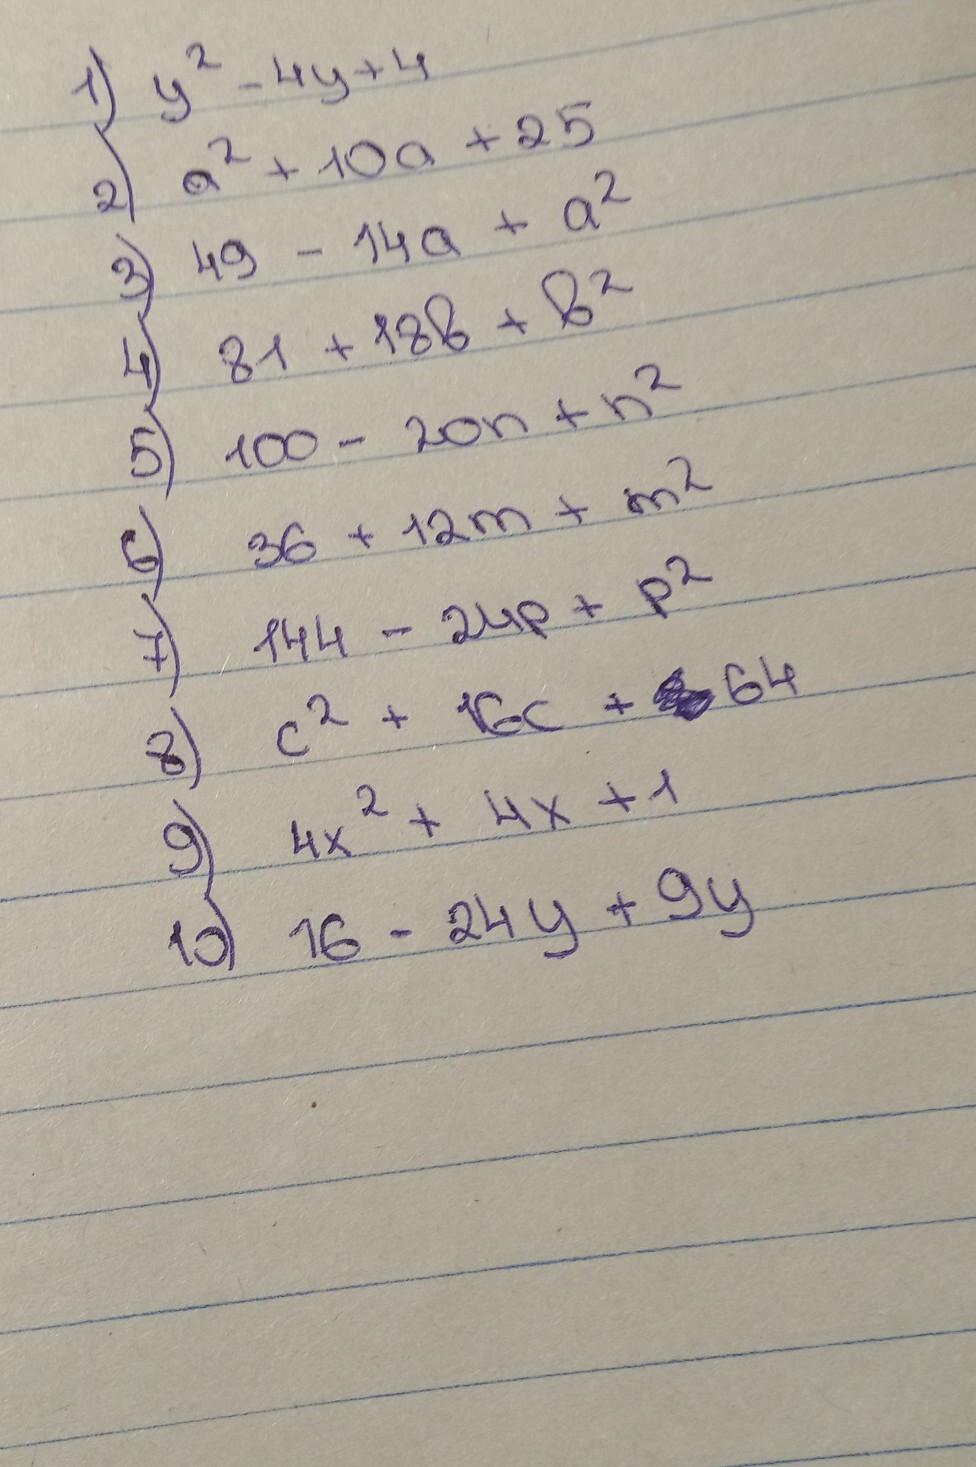 1) y² - 4y + 4
2) a² + 10a + 25
3) 49 - 14a + a²
4) 81 + 18b + b²
5) 100 - 20n + n²
6) 36 + 12m + m²
7) 144 - 24p + p²
8) c² + 16c + 64
9) 4x² + 4x + 1
10) 16 - 24y + 9y